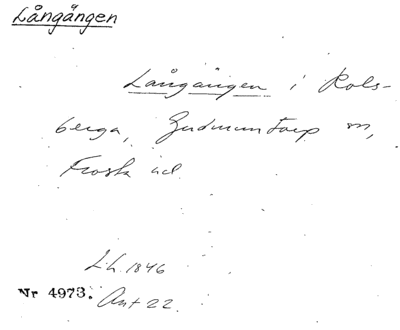 Långängen
Långängen i Rols-
berga, Gudmuntorp sn,
Frosta hd
L.h. 1846
Nr 4973. Ant 22.